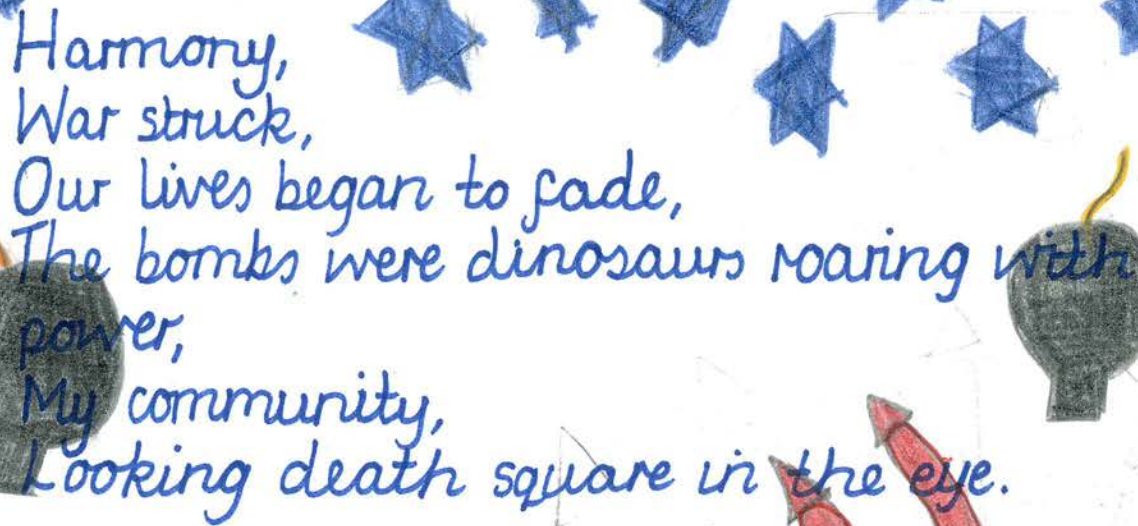 Harmony,
War struck,
Our lives began to fade,
The bombs were dinosaurs roaring with
power,
My community,
Looking death square in the eye.